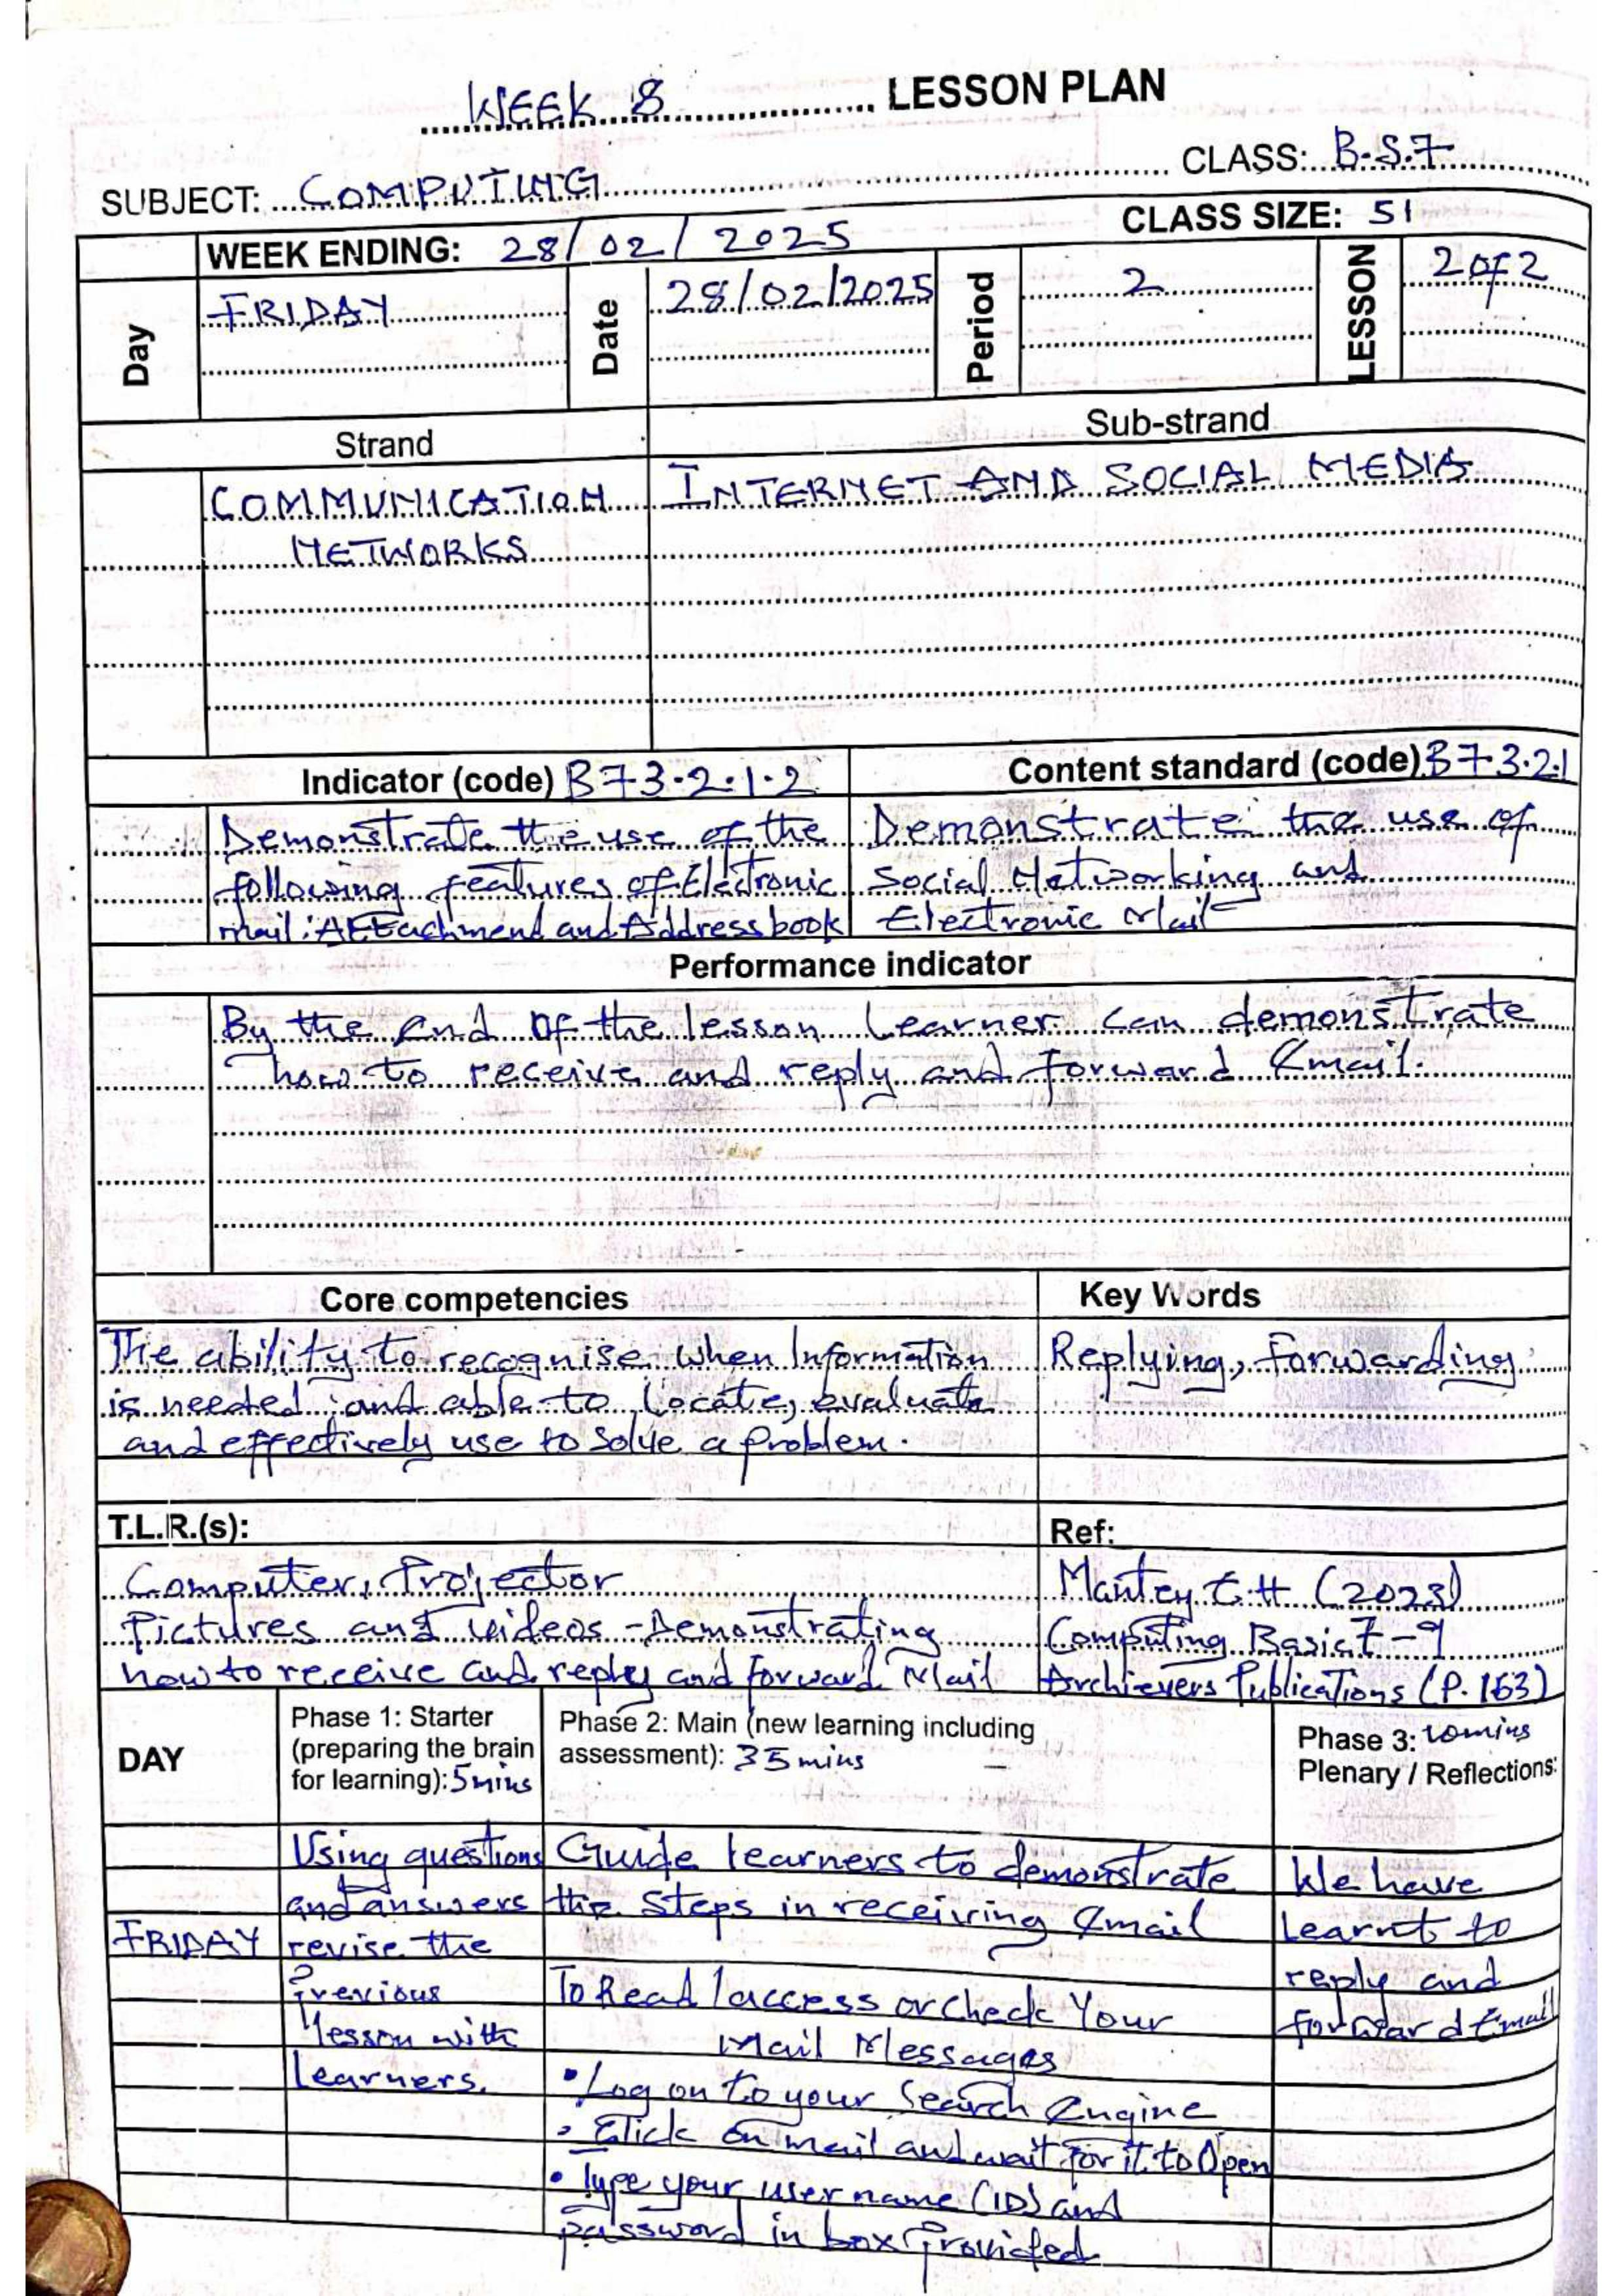 WEEK 8 LESSON PLAN
SUBJECT: COMPUTING CLASS: B.S.7
WEEK ENDING: 28/02/2025 CLASS SIZE: 51
Day FRIDAY Date 28/02/2025 Period 2 LESSON 2 of 2
Strand Sub-strand
COMMUNICATION INTERNET AND SOCIAL MEDIA
NETWORKS
Indicator (code) B73.2.1.2 Content standard (code) B73.2.1
Demonstrate the use of the Demonstrate the use of
following features of Electronic Social Networking and
mail: Attachment and Address book Electronic Mail
Performance indicator
By the end of the lesson Learner can demonstrate
how to receive and reply and forward Email.
Core competencies Key Words
The ability to recognise when Information Replying, forwarding
is needed and able to Locate, evaluate
and effectively use to solve a problem.
T.L.R.(s): Ref:
Computer, Projector Mantey E.H (2023)
Pictures and videos - Demonstrating Computing Basic 7-9
how to receive and reply and forward Mail Archievers Publications (P. 163)
DAY
Phase 1: Starter
(preparing the brain
for learning): 5mins
Phase 2: Main (new learning including
assessment): 35 mins
Phase 3: 10mins
Plenary / Reflections:
FRIDAY
Using questions
and answers
revise the
Previous
lesson with
Learners.
Guide learners to demonstrate
the steps in receiving Email
To Read / access or check Your
Mail Messages
• Log on to your Search Engine
• Click on mail and wait for it to Open
• Type your user name (ID) and
password in box provided
We have
Learnt to
reply and
forward Email